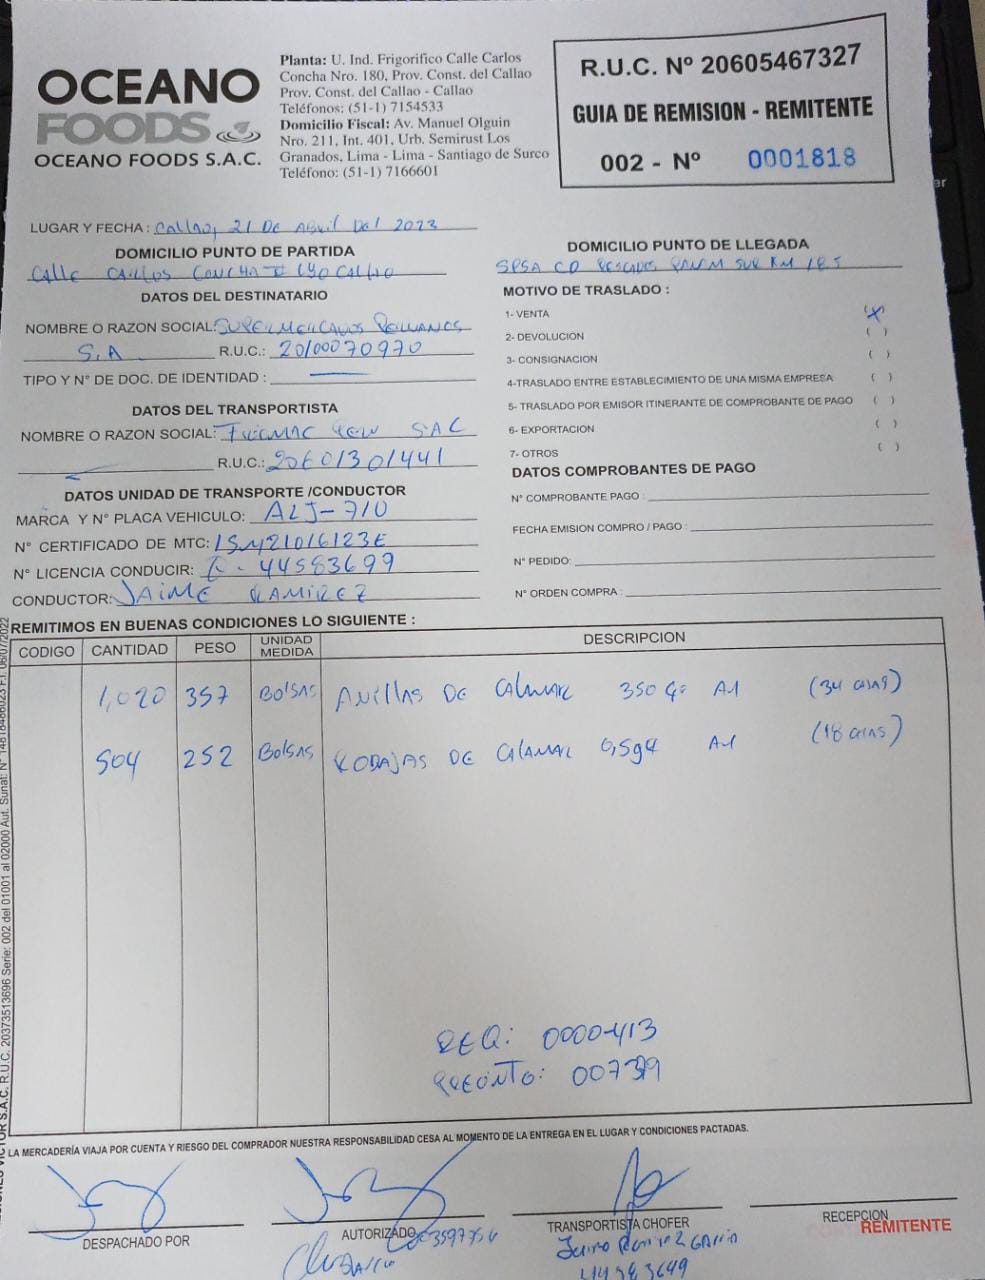 OCEANO
FOODS
OCEANO FOODS S.A.C.
Planta: U. Ind. Frigorifico Calle Carlos
Concha Nro. 180, Prov. Const. del Callao
Prov. Const. del Callao - Callao
Teléfonos: (51-1) 7154533
Domicilio Fiscal: Av. Manuel Olguin
Nro. 211, Int. 401, Urb. Semirust Los
Granados, Lima - Lima - Santiago de Surco
Teléfono: (51-1) 7166601
R.U.C. Nº 20605467327
GUIA DE REMISION - REMITENTE
002 - Nº 0001818
LUGAR Y FECHA : Callao, 21 De Abril Del 2023
DOMICILIO PUNTO DE PARTIDA
Calle Carlos Concha Callao
DOMICILIO PUNTO DE LLEGADA
SPSA CD Pescados PANM SUR KM 18.5
DATOS DEL DESTINATARIO
NOMBRE O RAZON SOCIAL: Supermercados Peruanos
S.A. R.U.C.: 20100070970
TIPO Y Nº DE DOC. DE IDENTIDAD :
MOTIVO DE TRASLADO :
1- VENTA (X)
2- DEVOLUCION ( )
3- CONSIGNACION ( )
4-TRASLADO ENTRE ESTABLECIMIENTO DE UNA MISMA EMPRESA ( )
5- TRASLADO POR EMISOR ITINERANTE DE COMPROBANTE DE PAGO ( )
6- EXPORTACION ( )
7- OTROS ( )
DATOS DEL TRANSPORTISTA
NOMBRE O RAZON SOCIAL: SAC
R.U.C.: 20601301441
DATOS UNIDAD DE TRANSPORTE /CONDUCTOR
MARCA Y Nº PLACA VEHICULO: ALJ-710
Nº CERTIFICADO DE MTC: 15M21016123E
Nº LICENCIA CONDUCIR: Q-44583699
CONDUCTOR: JAIME RAMIREZ
DATOS COMPROBANTES DE PAGO
N° COMPROBANTE PAGO :
FECHA EMISION COMPRO / PAGO :
N° PEDIDO:
N° ORDEN COMPRA :
REMITIMOS EN BUENAS CONDICIONES LO SIGUIENTE :
CODIGO CANTIDAD PESO UNIDAD MEDIDA DESCRIPCION
1,020 357 Bolsas Anillas DE Calamar 350 Gr A-1 (34 cajas)
504 252 Bolsas RODAJAS DE CALAMAR 0,5 A-1 (18 cajas)
REQ: 0000413
PRECINTO:
LA MERCADERÍA VIAJA POR CUENTA Y RIESGO DEL COMPRADOR NUESTRA RESPONSABILIDAD CESA AL MOMENTO DE LA ENTREGA EN EL LUGAR Y CONDICIONES PACTADAS.
DESPACHADO POR
AUTORIZADO
TRANSPORTISTA CHOFER
RECEPCION
REMITENTE
Jaime Ramirez Garcia
R.U.C. 20373513696 Serie: 002 del 01001 al 02000 Aut. Sunat: N° 14818486023 F.I. 06/07/2022